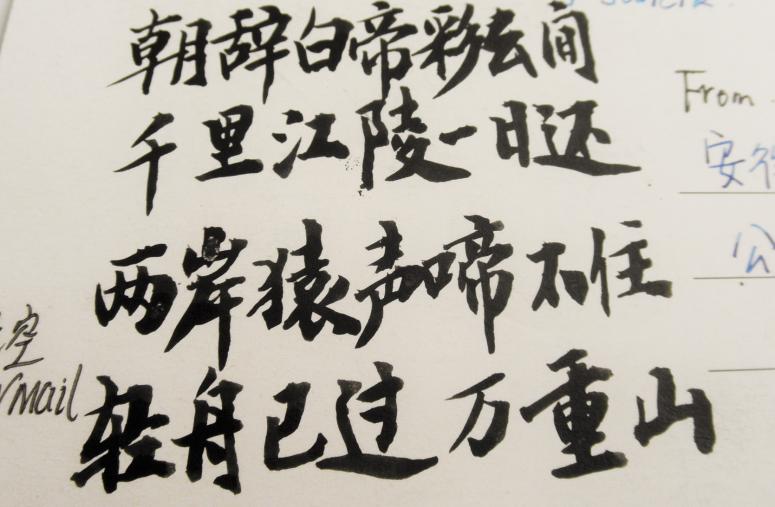 朝辞白帝彩云间
千里江陵一日还
两岸猿声啼不住
轻舟已过万重山
From
安
公
空
Mail